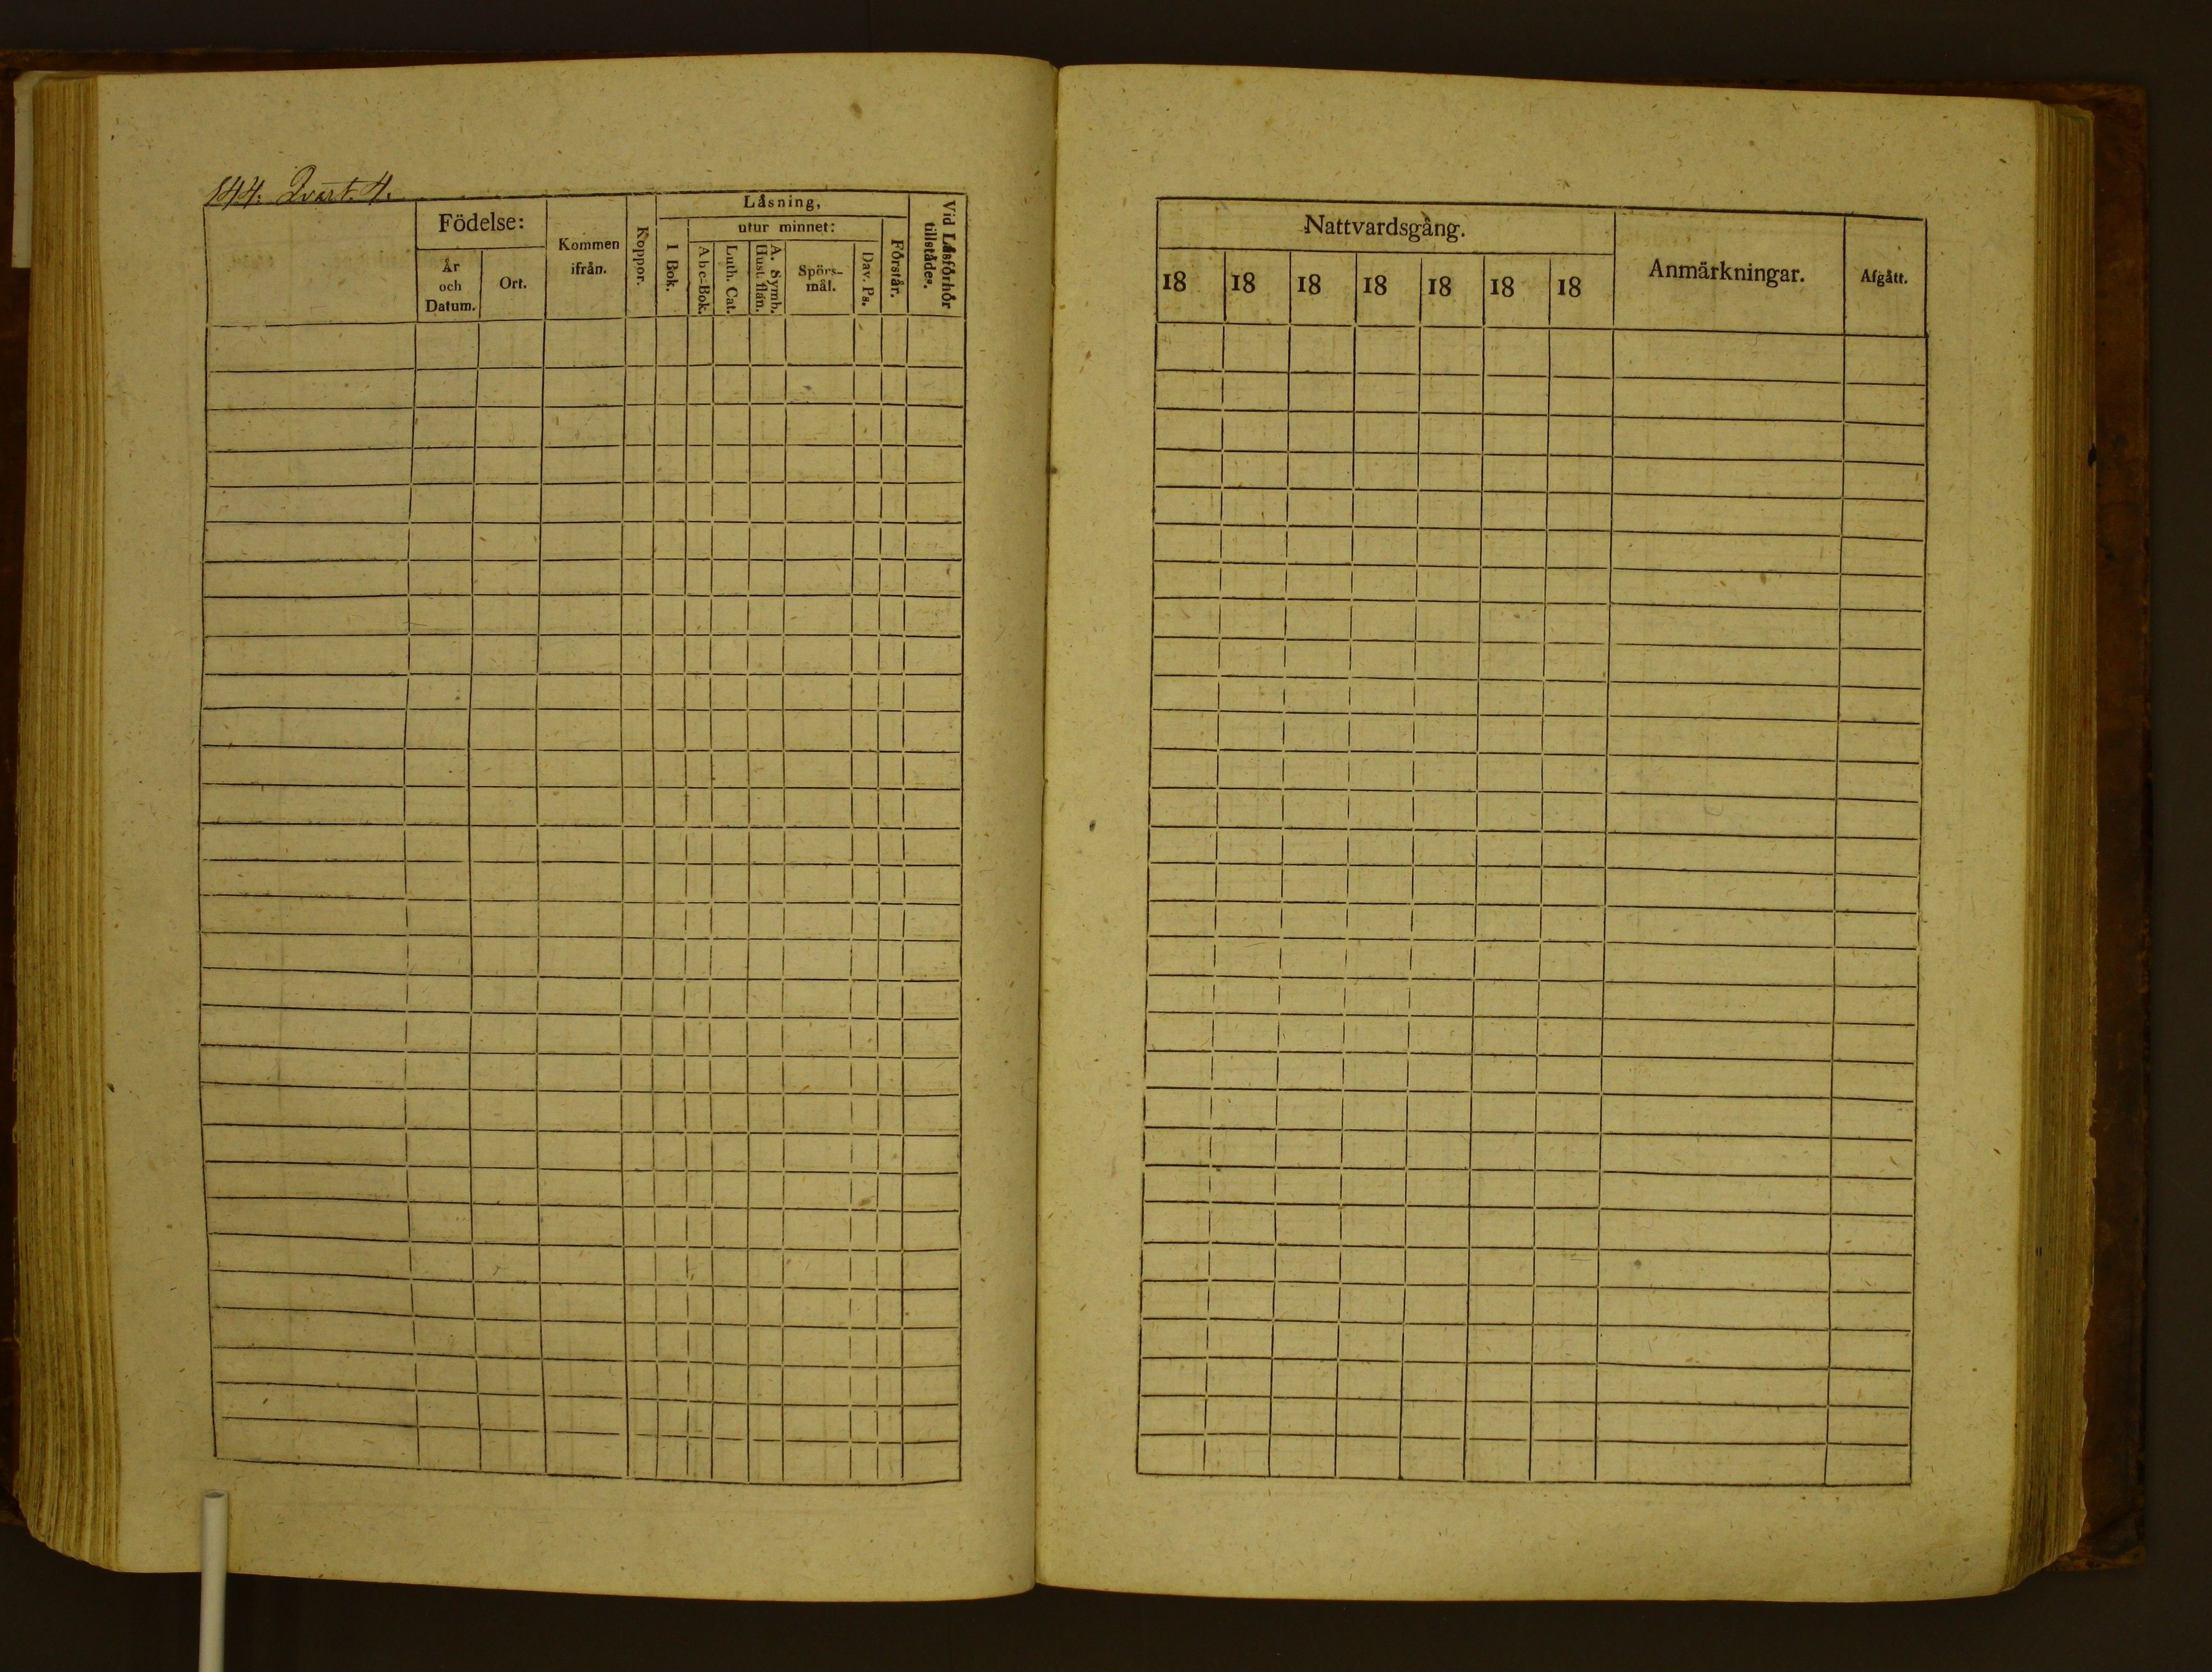 144. Qvart. 4.
Födelse:
År
och
Datum.
Ort.
Kommen
ifrån.
Koppor.
Läsning,
I Bok.
utur minnet:
Abc-Bok.
Luth. Cat.
A. Symb.
Hust. flan.
Spörs-
mål.
Dav. Ps.
Förstår.
Vid Läsförhör
tillstädes.
Nattvardsgång.
18 18 18 18 18 18 18
Anmärkningar.
Afgått.